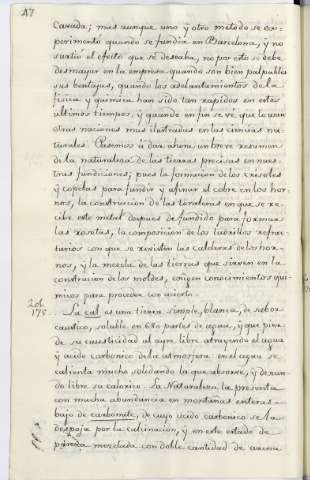 47
Cavada; mas aunque uno y otro metodo se ex-
perimentó quando se fundia en Barcelona, y no
surtió el efecto que se deseaba, no por esto se debe
desmayar en la empresa quando son bien palpables
sus ventajas, quando los adelantamientos de la
fisica y quimica han sido tan rapidos en estos
ultimos tiempos, y quando en fin se vé que lo usan
otras naciones mas ilustradas en las ciencias na-
turales. Pasemos á dar ahora un breve resumen
de la naturaleza de las tierras precisas en nues-
tras fundiciones; pues la formacion de los crisoles
y copelas para fundir y afinar el cobre en los hor-
nos, la construccion de las torateras en que se re-
cibe este metal despues de fundido para formar
las rosetas, la composicion de los ladrillos refrac-
tarios con que se revisten las calderas de los hor-
nos, y la mezcla de las tierras que sirven en la
construccion de los moldes, exigen conocimientos qui-
micos para proceder con acierto.
La cal es una tierra simple, blanca, de sabor
caustico, soluble en 680 partes de agua, y que pier-
de su causticidad al ayre libre atrayendo el agua
y acido carbonico de la atmosfera en el agua se
calienta mucho solidando la que absorve, y dexan-
do libre su calorico. La Naturaleza la presenta
con mucha abundancia en montañas enteras
bajo de carbonate, de cuyo acido carbonico se la
despoja por la calcinacion, y en este estado de
pureza mezclada con doble cantidad de arena